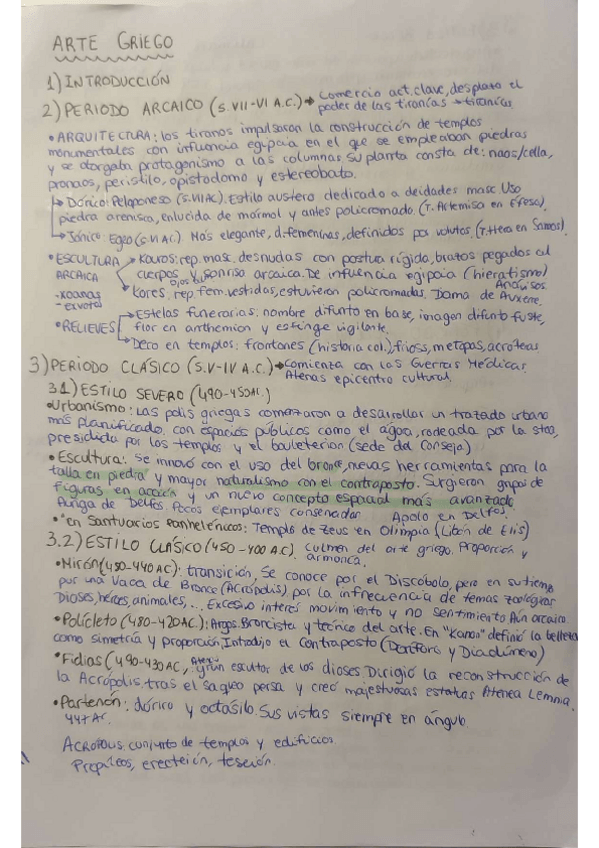 ARTE GRIEGO
1) INTRODUCCIÓN
2) PERIODO ARCAICO (S.VII-VI A.C.) → Comercio act. clave, desplazó el
poder de las tiranías → tiranías
• ARQUITECTURA: los tiranos impulsaron la construcción de templos
monumentales con influencia egipcia en el que se empleaban piedras
y se otorgaba protagonismo a las columnas. Su planta consta de: naos/cella,
pronaos, peristilo, opistodomo y estereobato.
→ Dórico: Peloponeso (S.VII AC). Estilo austero dedicado a deidades masc. Uso
piedra arenisca, enlucida de mármol y antes policromado. (T. Artemisa en Efeso).
→ Jónico: Egeo (S.VI AC) Más elegante, d. femeninas, definidos por volutas. (T. Hera en Samos).
• ESCULTURA ARCAICA → Kouros: rep. masc. desnudas con postura rígida, brazos pegados al
cuerpo y sonrisa arcaica. De influencia egipcia (hieratismo)
-xoanas
-exvotos
→ Kores, rep. fem. vestidas, estuvieron policromadas. Dama de Auxerre.
• RELIEVES → Estelas funerarias: nombre difunto en base, imagen difunto fuste,
flor en anthemion y esfinge vigilante.
→ Deco en templos: frontones (historia col.), frisos, metopas, acroteras
3) PERIODO CLÁSICO (S.V-IV A.C.) → Comienza con las Guerras Médicas.
Atenas epicentro cultural.
3.1) ESTILO SEVERO (490-450 AC.)
• Urbanismo: Las polis griegas comenzaron a desarrollar un trazado urbano
más planificado, con espacios públicos como el ágora, rodeada por la stoa,
presidida por los templos y el bouleterion (sede del Consejo)
• Escultura: Se innovó con el uso del bronce, nuevas herramientas para la
talla en piedra y mayor naturalismo con el contraposto. Surgieron grupos de
figuras en acción y un nuevo concepto espacial más avanzado
Auriga de Delfos. Pocos ejemplares conservados Apolo en Delfos.
• "en Santuarios Panhelénicos: Templo de Zeus en Olimpia (Libón de Elis)
3.2) ESTILO CLASICO (450-400 A.C.) Culmen del arte griego. Proporción y
armonía.
• Mirón (450-440 AC): transición, Se conoce por el Discóbolo, pero en su tiempo
por una Vaca de Bronce (Acrópolis) por la infrecuencia de temas zoológicos
Dioses, héroes, animales,... Excesivo interés movimiento y no sentimiento. Aún arcaico.
• Policleto (480-420 AC.): Argos. Broncista y teórico del arte. En "Kanon" definió la belleza
como simetría y proporción. Introdujo el Contraposto (Doríforo y Diadúmeno)
• Fidias (490-430 AC, gran escultor de los dioses. Dirigió la reconstrucción de
la Acrópolis tras el saqueo persa y creó majestuosas estatuas Atenea Lemnia.
• Partenón: dórico y octásilo. Sus vistas siempre en ángulo.
447 AC.
ACROPOLIS conjunto de templos y edificios.
Propileos, erecteión, teseión.